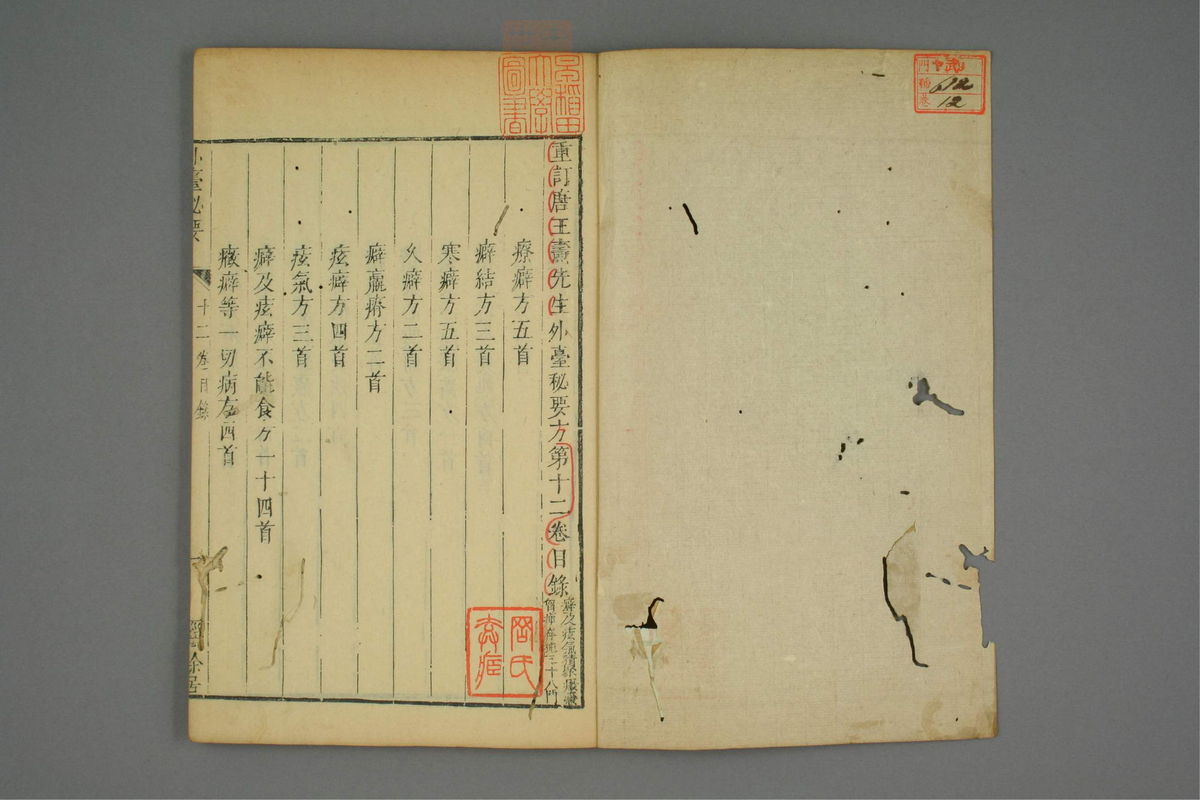 門 ヤ
號 612
卷 12
早稲田
大學
圖書
重訂唐王燾先生外臺秘要方第十二卷目錄
癖及痃氣積聚癥瘕
胸痺奔㹠三十八門
療癖方五首
癖結方三首
寒癖方五首
久癖方二首
癖羸瘠方二首
痃癖方四首
痃氣方三首
癖及痃癖不能食方一十四首
癥癖等一切病方四首
外臺秘要
十二卷目錄
經餘居